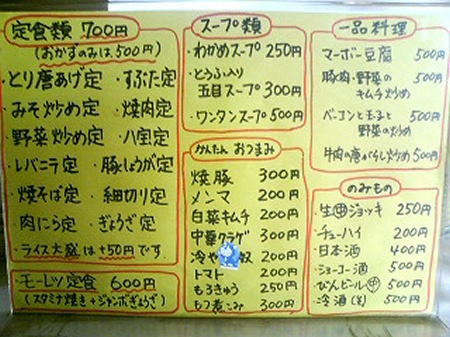 定食類 700円
(おかずのみは500円)
・とり唐あげ定 ・すぶた定
・みそ炒め定 ・焼肉定
・野菜炒め定 ・八宝定
・レバニラ定 ・豚しょうが定
・焼そば定 ・細切り定
・肉にら定 ・ぎょうざ定
・ライス大盛は+50円です
・モーレツ定食 600円
(スタミナ焼き+ジャンボぎょうざ)
スープ類
・わかめスープ 250円
・とうふ入り
五目スープ 300円
・ワンタンスープ 500円
かんたん おつまみ
焼豚 300円
メンマ 200円
白菜キムチ 200円
中華クラゲ 300円
冷や奴 200円
トマト 200円
もろきゅう 250円
もつ煮こみ 300円
一品料理
マーボー豆腐 500円
豚肉・野菜の
キムチ炒め 500円
ベーコンと玉子と
野菜の炒め 500円
牛肉の唐がらし炒め 500円
のみもの
・生㊥ジョッキ 250円
・チューハイ 200円
・日本酒 400円
・ショーコー酒 500円
・びんビール㊥ 500円
・冷酒 500円